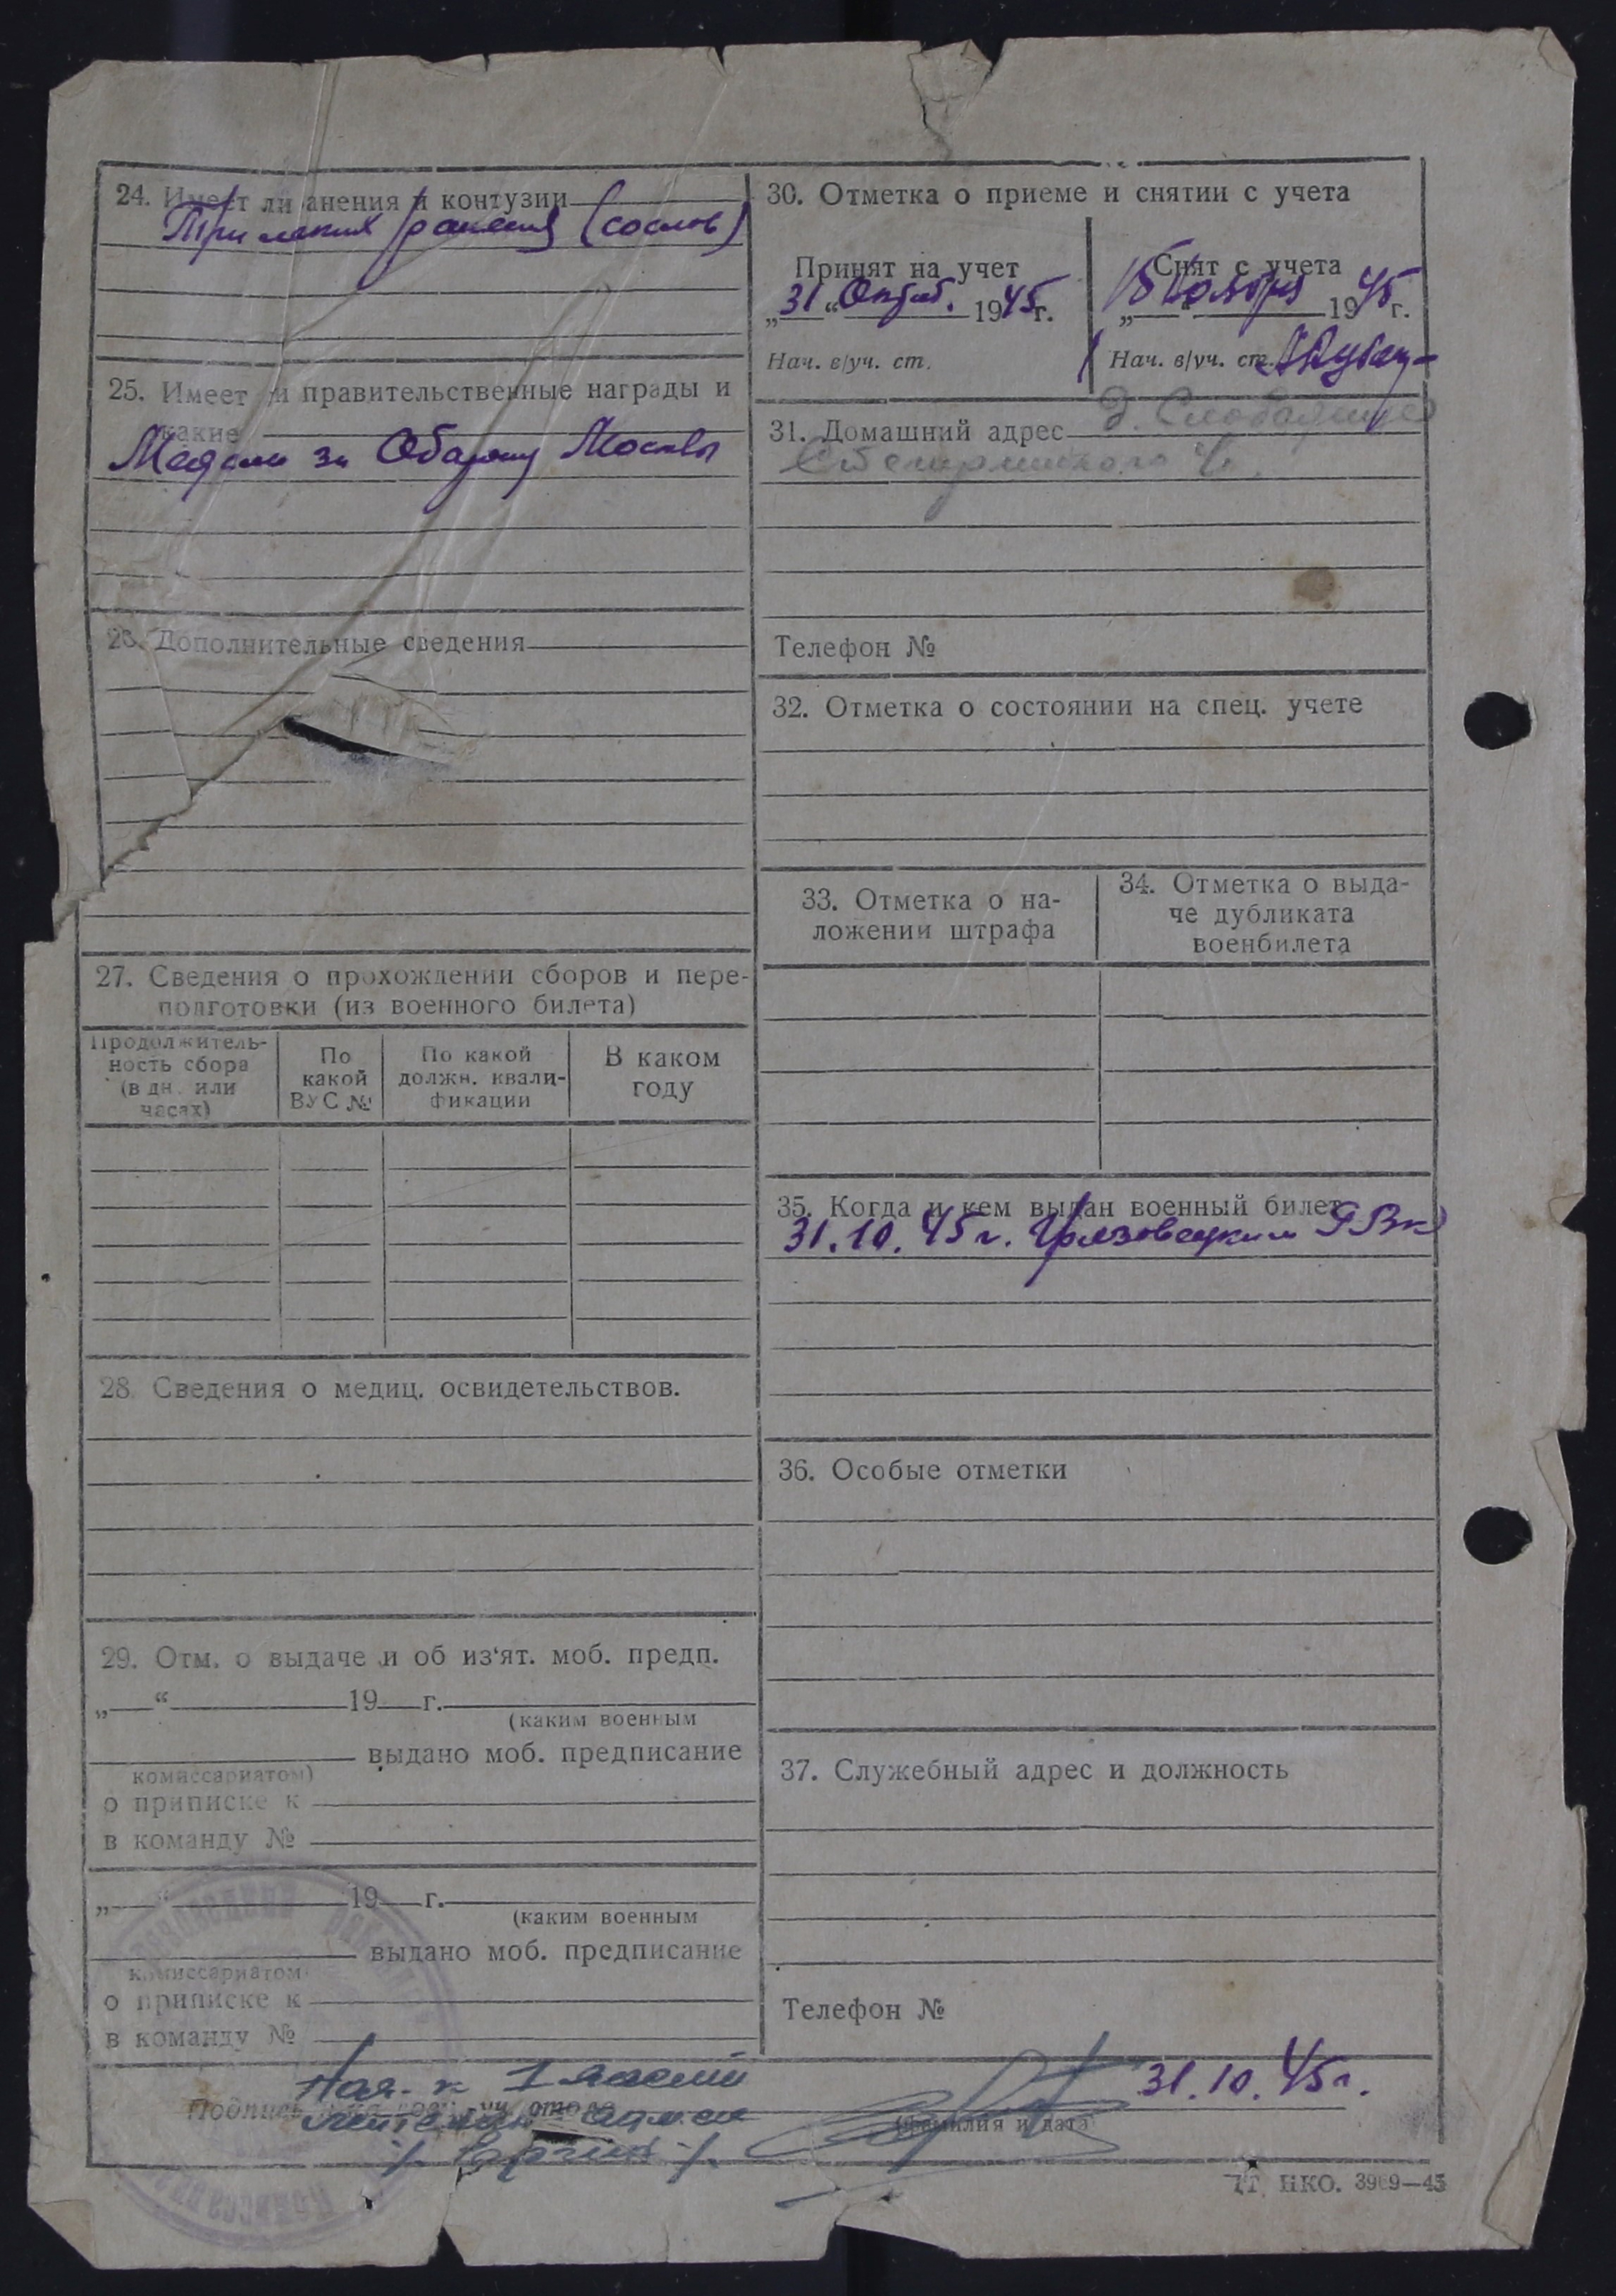 24. Имеет ли ранения и контузии
Три легких ранения (со слов)
25. Имеет ли правительственные награды и
какие
Медали за Оборону Москвы
26. Дополнительные сведения
27. Сведения о прохождении сборов и пере-
подготовки (из военного билета)
Продолжитель-
ность сбора
(в дн. или
часах)
По
какой
ВУС №
По какой
должн. квали-
фикации
В каком
году
28. Сведения о медиц. освидетельствов.
29. Отм. о выдаче и об из‘ят. моб. предп.
„ “ 19 г.
(каким военным
выдано моб. предписание
комиссариатом)
о приписке к
в команду №
„ “ 19 г.
(каким военным
выдано моб. предписание
комиссариатом)
о приписке к
в команду №
30. Отметка о приеме и снятии с учета
Принят на учет
„31“ Октяб. 1945г.
Нач. в/уч. ст.
Снят с учета
„15“ Ноября 1945 г.
Нач. в/уч. ст.
31. Домашний адрес
Телефон №
32. Отметка о состоянии на спец. учете
33. Отметка о на-
ложении штрафа
34. Отметка о выда-
че дубликата
военбилета
35. Когда и кем выдан военный билет
31.10.45 г. Грязовецким РВК
36. Особые отметки
37. Служебный адрес и должность
Телефон №
Нач. 1 части
Подпись
лейтенант адм. сл.
31.10.45г.
(фамилия и дата)
НКО. 3969—45